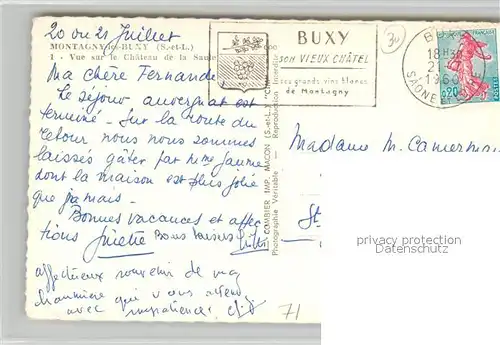 20 ou 21 Juillet
MONTAGNY-les-BUXY (S.-et-L.)
1 - Vue sur le Château de la Saule
Ma Chère Fernande
Le séjour auvergnat est
terminé - Sur la route du
retour nous nous sommes
laissés gâter par Mme Jaume
dont la maison est plus jolie
que jamais -
Bonnes vacances et affec
tions Juliette Bons baisers
affectueux souvenir de ma
chaumière qui vous attend
avec impatience
COMBIER IMP. MACON (S.-et-L.)
Photographie Véritable - Reproduction Interdite
BUXY
son VIEUX CHÂTEL
ses grands vins blancs
de Montagny
30
18H30
21
1960
SAÔNE ET
0,20
POSTES
Madame M. Camerman
St
71
privacy protection
Datenschutz